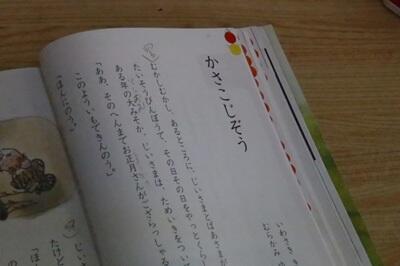 かさこじぞう
いわさき き
むらかみ
むかしむかし、あるところに、じいさまとばあさまが
たいそうびんぼうで、その日その日をやっとくら
ある年の大みそか、じいさまは、ためいきをついて
「ああ、そのへんまでお正月さんがござらっしゃる
このよういもできんのう。」
「ほんにのう。」
たけど
「ほ